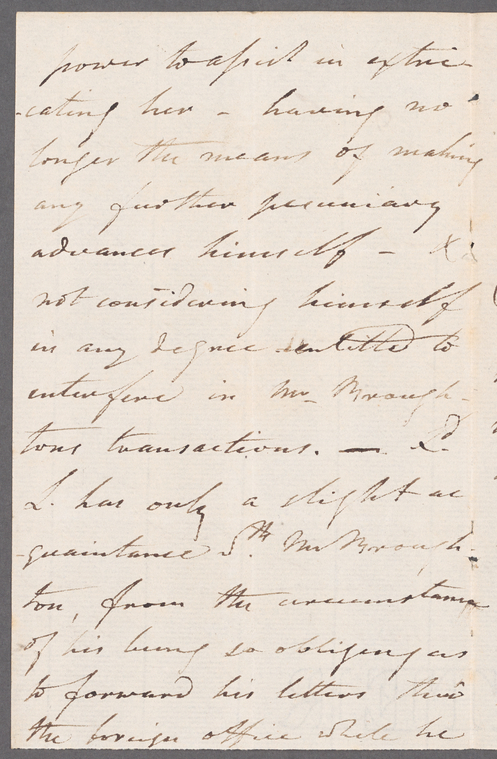 power to assist in extri-
-cating her - having no
longer the means of making
any further pecuniary
advances himself - &
not considering himself
in any degree entitled to
interfere in Mr. Brough-
tons transactions. — Ld.
L. has only a slight ac
-quaintance wth. Mr Brough-
ton, from the circumstance
of his being so obliging as
to forward his letters thro'
the foreign office while he